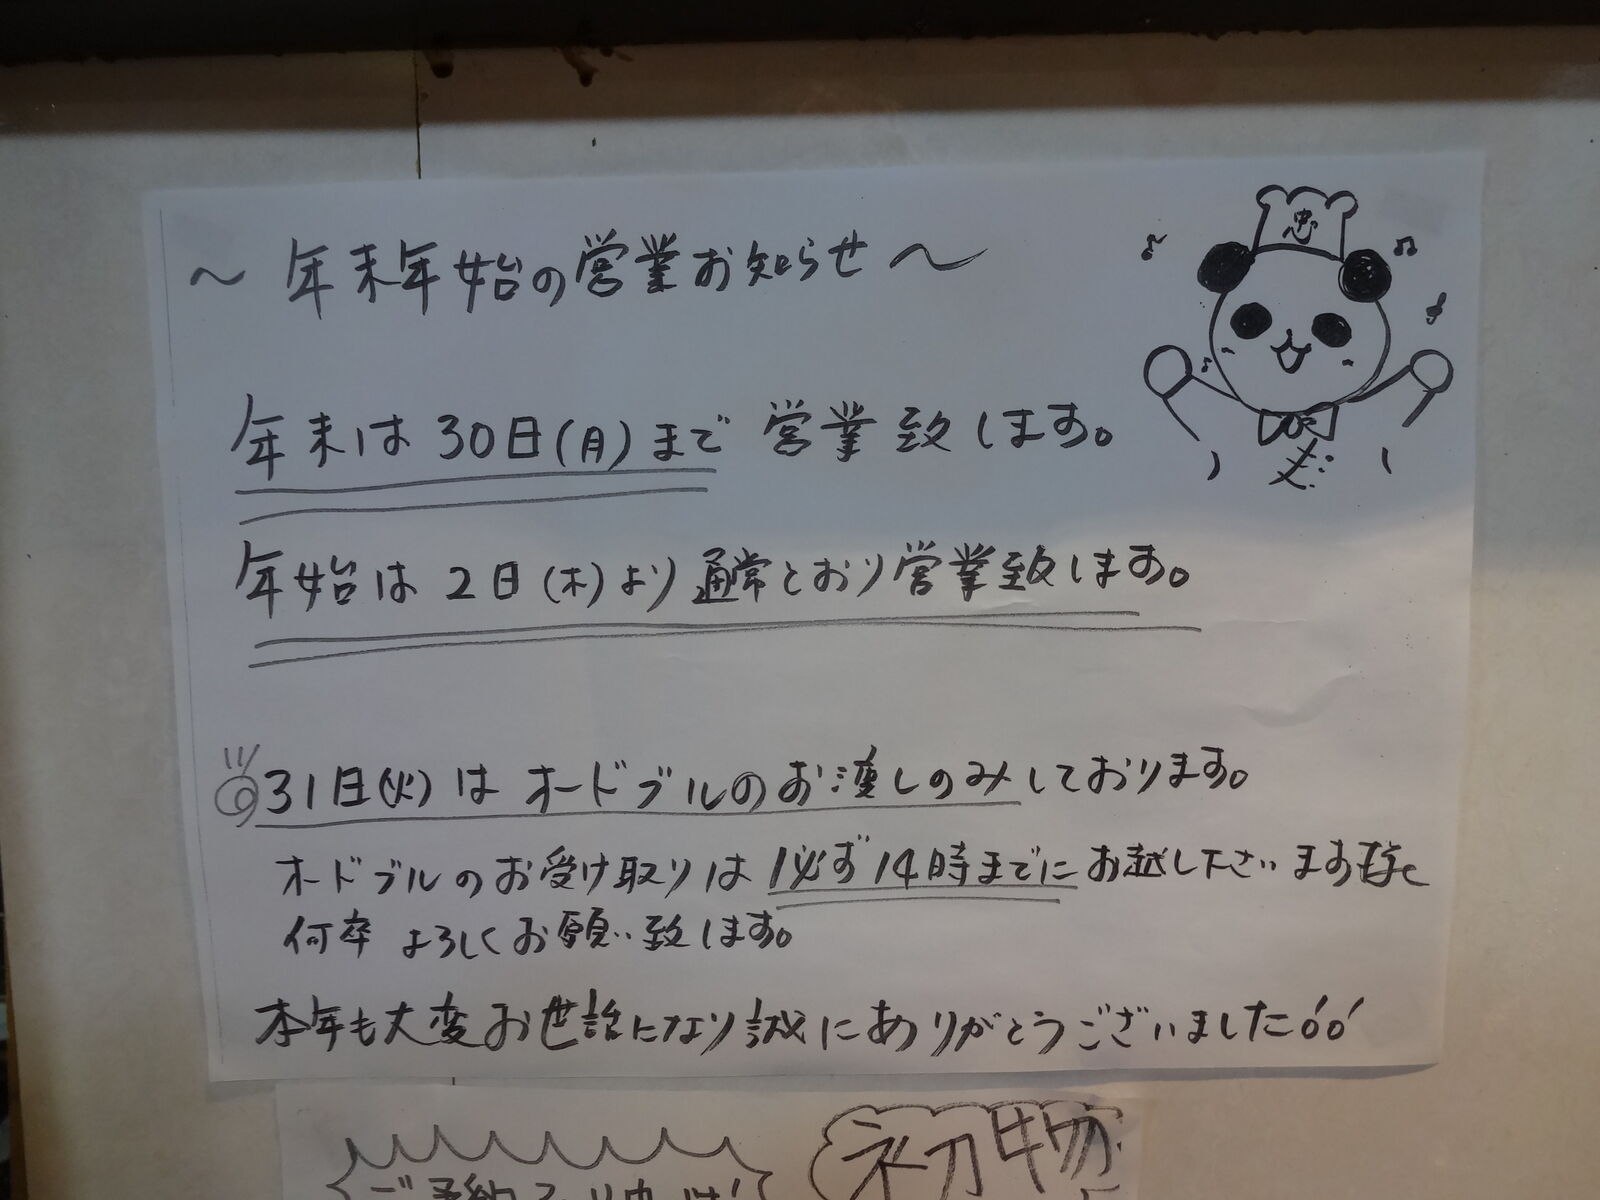 ～年末年始の営業お知らせ～
忠
年末は30日(月)まで営業致します。
年始は2日(木)より通常とおり営業致します。
31日(火)はオードブルのお渡しのみしております。
オードブルのお受け取りは必ず14時までにお越し下さいます様
何卒よろしくお願い致します。
本年も大変お世話になり誠にありがとうございました!!
初物